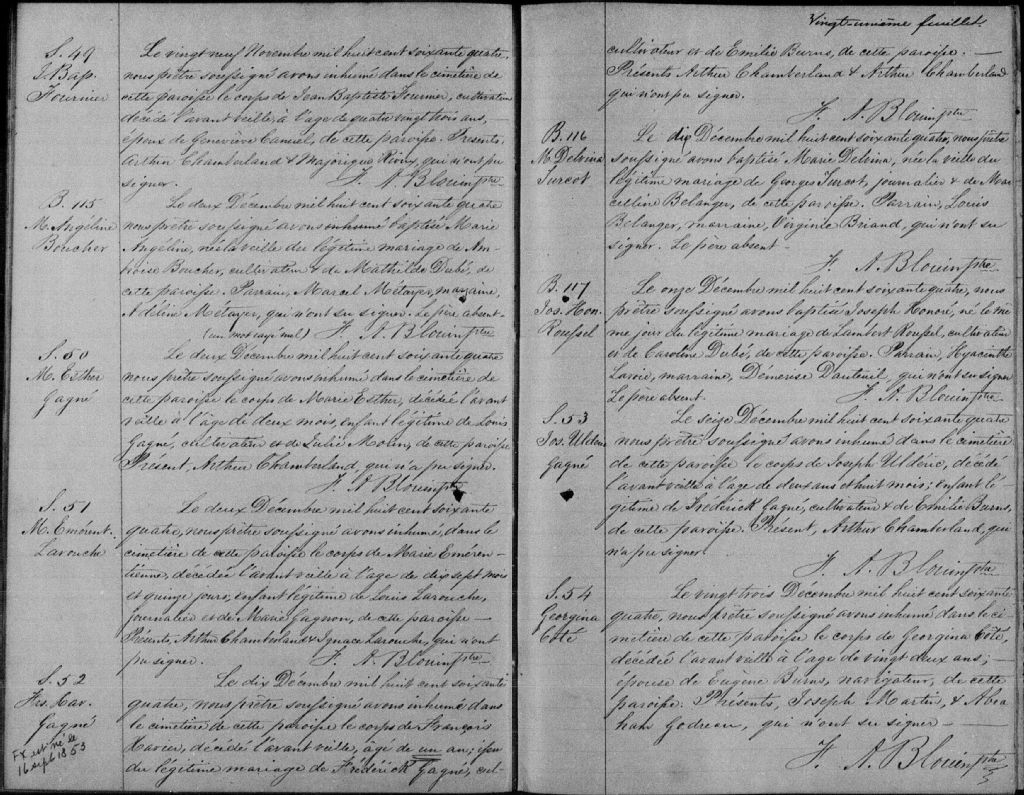 S. 49
J. Bap.
Fournier
Le vingt neuf Novembre mil huit cent soixante quatre,
nous prêtre soussigné avons inhumé dans le cimetière de
cette paroisse le corps de Jean Baptiste Fournier, cultivateur
décédé l'avant veille à l'age de quatre vingt trois ans,—
époux de Geneviève Canuel, de cette paroisse. Présents,
Arthur Chamberland & Majorique Rioux, qui n'ont pu
signer. F. A. Blouin ptre
B. 115
M. Angéline
Boucher
Le deux Décembre mil huit cent soixante quatre
nous prêtre soussigné avons inhumé baptisé Marie
Angéline, née la veille du légitime mariage de Am-
broise Boucher, cultivateur & de Mathilde Dubé, de
cette paroisse. Parrain, Marcel Métayer, marraine,
Adéline Métayer, qui n'ont su signer. Le père absent-
(un mot rayé nul) F. A. Blouin ptre
S. 50
M. Esther
Gagné
Le deux Décembre mil huit cent soixante quatre
nous prêtre soussigné avons inhumé dans le cimetière de
cette paroisse le corps de Marie Esther, décédée l'avant
veille à l'âge de deux mois, enfant légitime de Louis
Gagné, cultivateur et de Julie Morin, de cette paroisse
Présent, Arthur Chamberland, qui n'a pu signer.
F. A. Blouin ptre
S. 51
M. Emérent.
Larouche
Le deux Décembre mil huit cent soixante
quatre, nous prêtre soussigné avons inhumé, dans le
cimetière de cette paroisse le corps de Marie Emeren-
tienne, décédée l'avant veille à l'age de dix sept mois
et quinze jours, enfant légitime de Louis Larouche,
journalier et de Marie Gagnon, de cette paroisse—
Présents, Arthur Chamberland & Ignace Larouche, qui n'ont
pu signer. F. A. Blouin ptre
S. 52
Frs. Xav.
Gagné
FX est né le
16 sept 1853
Le dix Décembre mil huit cent soixante
quatre, nous prêtre soussigné avons inhumé dans
le cimetière de cette paroisse le corps de François
Xavier, décédé l'avant veille, âgé de un an; issu
du légitime mariage de Frédérick Gagné, cul-
Vingt-unième feuillet.
cultivateur et de Emilie Burns, de cette paroisse.—
Présents Arthur Chamberland & Arthur Chamberland
qui n'ont pu signer.
F. A. Blouin ptre
B. 116
M. Delvina
Turcot
Le dix Décembre mil huit cent soixante quatre, nous prêtre
soussigné avons baptisé Marie Delvina, née la veille du
légitime mariage de Georges Turcot, journalier & de Mar-
celline Bélanger, de cette paroisse. Parrain, Louis
Bélanger, marraine, Virginie Briand, qui n'ont su
signer. Le père absent-
F. A. Blouin ptre
B. 117
Jos. Hon.
Roussel
Le onze Décembre mil huit cent soixante quatre, nous
prêtre soussigné avons baptisé Joseph Honoré, né le mê
me jour du légitime mariage de Lambert Roussel, cultivateur
et de Caroline Dubé, de cette paroisse. Parrain, Hyacinthe
Lavoie, marraine, Démerise Dauteuil, qui n'ont su signer
Le père absent. F. A. Blouin ptre
S. 53
Jos. Ulderic
Gagné
Le seize Décembre mil huit cent soixante quatre
nous prêtre soussigné avons inhumé dans le cimetière
de cette paroisse le corps de Joseph Ulderic, décédé
l'avant veille à l'age de deux ans et huit mois; enfant lé-
gitime de Frédérick Gagné, cultivateur & de Emilie Burns,
de cette paroisse. Présent, Arthur Chamberland, qui
n'a pu signer
F. A. Blouin ptre
S. 54
Georgina
Côté
Le vingt trois Décembre mil huit cent soixante
quatre, nous prêtre soussigné avons inhumé dans le ci
metière de cette paroisse le corps de Georgina Côté,
décédée l'avant veille à l'age de vingt deux ans;—
épouse de Eugène Burns, navigateur, de cette
paroisse. Présents, Joseph Martin, & Abra
ham Godreau, qui n'ont su signer—
F. A. Blouin ptre